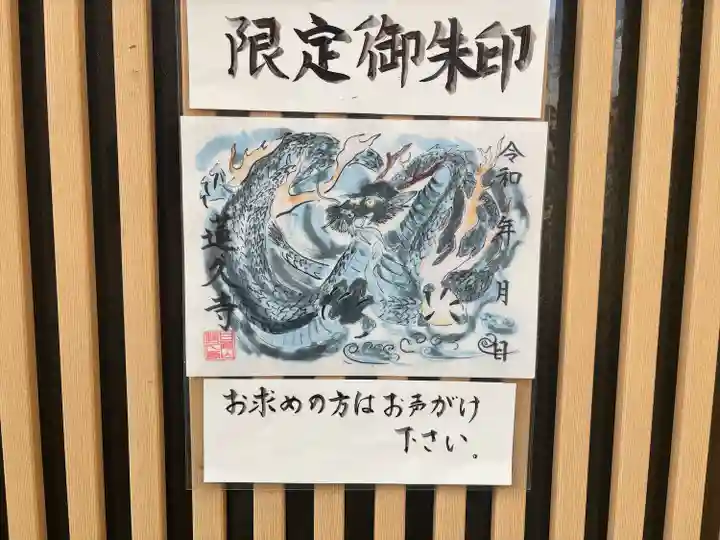 限定御朱印
令和 年 月 日
蓮久寺
お求めの方はお声がけ
下さい。